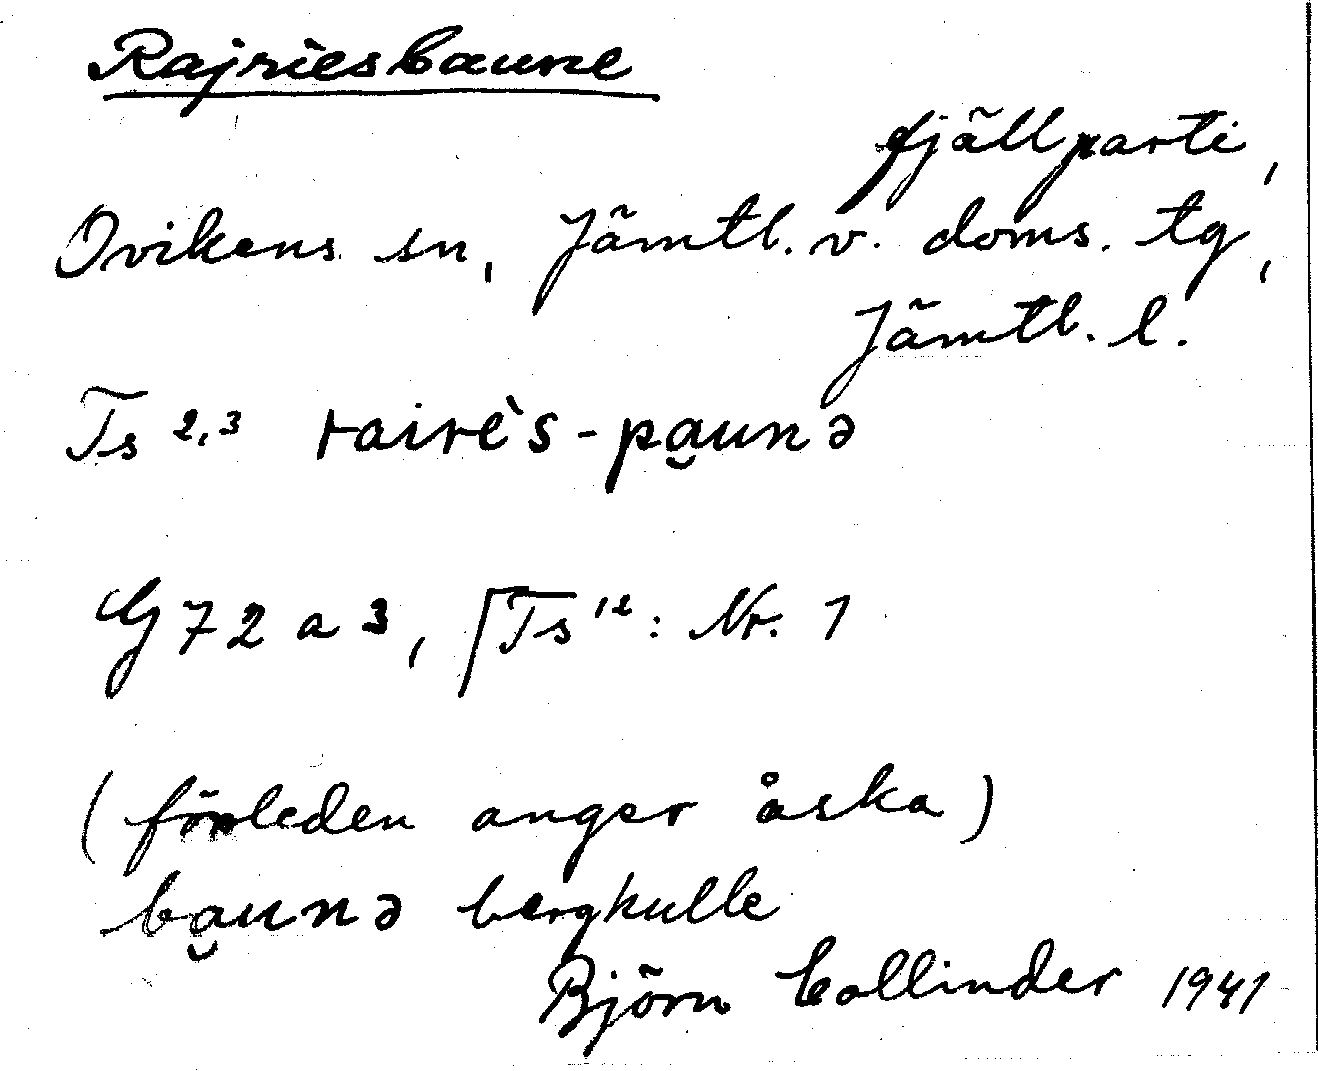 Rajriesbaune
fjällparti,
Ovikens sn, Jämtl. v. doms. tg,
Jämtl. l.
Ts 2,3 rairès-pa̮unə
G 72 a 3, Ts 12: Nr. 1
(förleden anger åska)
ba̮unə bergkulle
Björn Collinder 1941